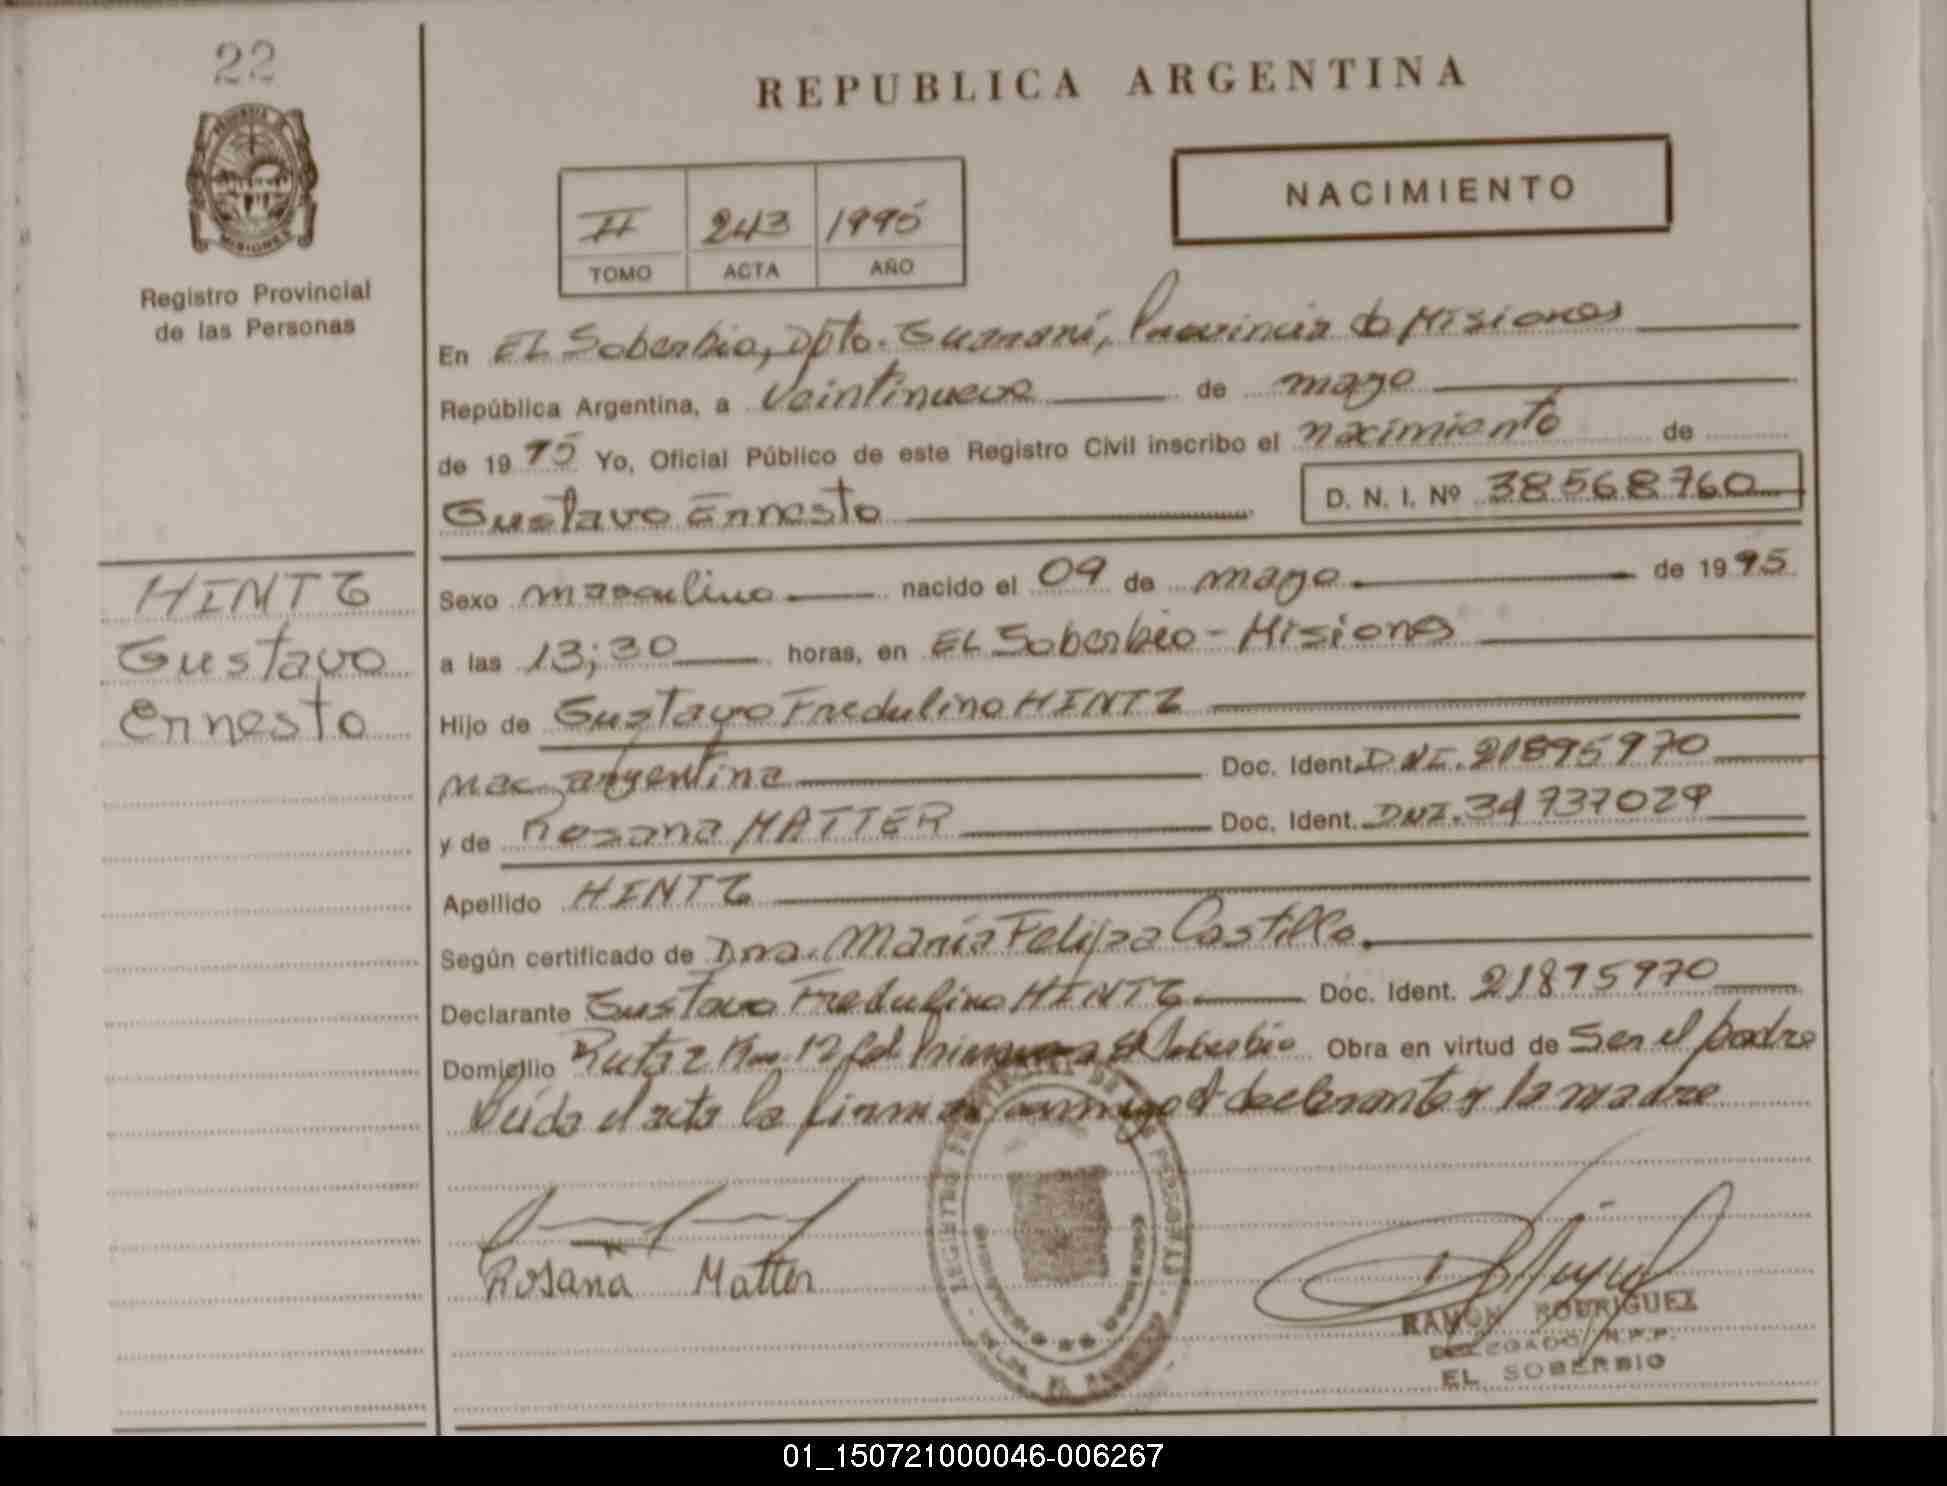 22
REPUBLICA ARGENTINA
PROVINCIA
MISIONES
Registro Provincial
de las Personas
NACIMIENTO
II 243 1995
TOMO ACTA AÑO
En EL Soberbio, Dpto. Guaraní, Provincia de Misiones
República Argentina, a veintinueve de mayo
de 1995 Yo, Oficial Público de este Registro Civil inscribo el nacimiento de
Gustavo Ernesto D. N. I. Nº 38568760
HINTZ
Gustavo
Ernesto
Sexo masculino nacido el 09 de mayo de 1995
a las 13;30 horas, en EL Soberbio - Misiones
Hijo de Gustavo Fredulino HINTZ
nac. argentina Doc. Ident. DNI. 21895970
y de Rosana MATTER Doc. Ident. DNI. 34737029
Apellido HINTZ
Según certificado de Dra. María Felipa Castillo.
Declarante Gustavo Fredulino HINTZ Doc. Ident. 21895970
Domicilio Ruta 2 Km. 12 El Soberbio Obra en virtud de Ser el padre
Leída el acta la firman conmigo el declarante y la madre
Rosana Matter
RAMON RODRIGUEZ
DELEGADO R.P.P.
EL SOBERBIO
01_150721000046-006267